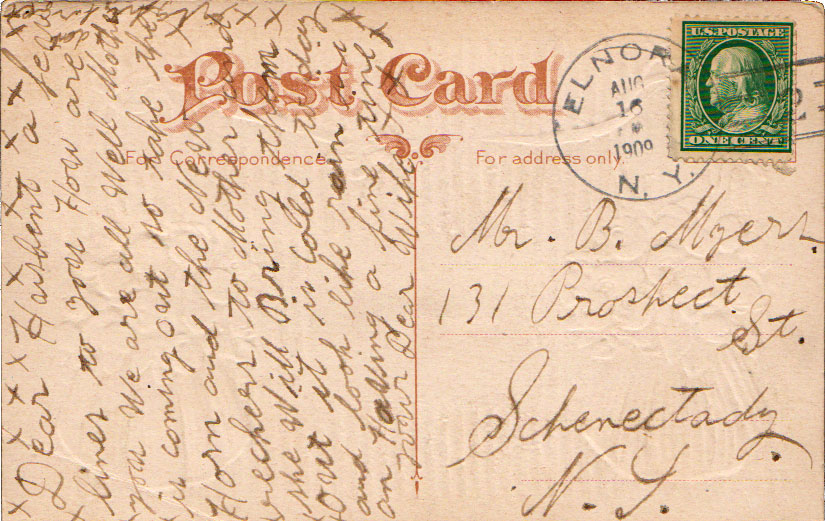 Post Card
For Correspondence.
For address only.
U.S. POSTAGE
ONE CENT
ELNORA
AUG
16
1909
N. Y.
Mr. B. Myers
131 Prospect
St.
Schenectady
N. Y.
x x x x Dear Hasbent a few
lines to you How are
you We are all Well Mother
is coming out to take the
Horn and the New
to Mother and
she Will Bring them
out it is cold to day
and look like rain
an Having a fine time
your Dear Wife x x